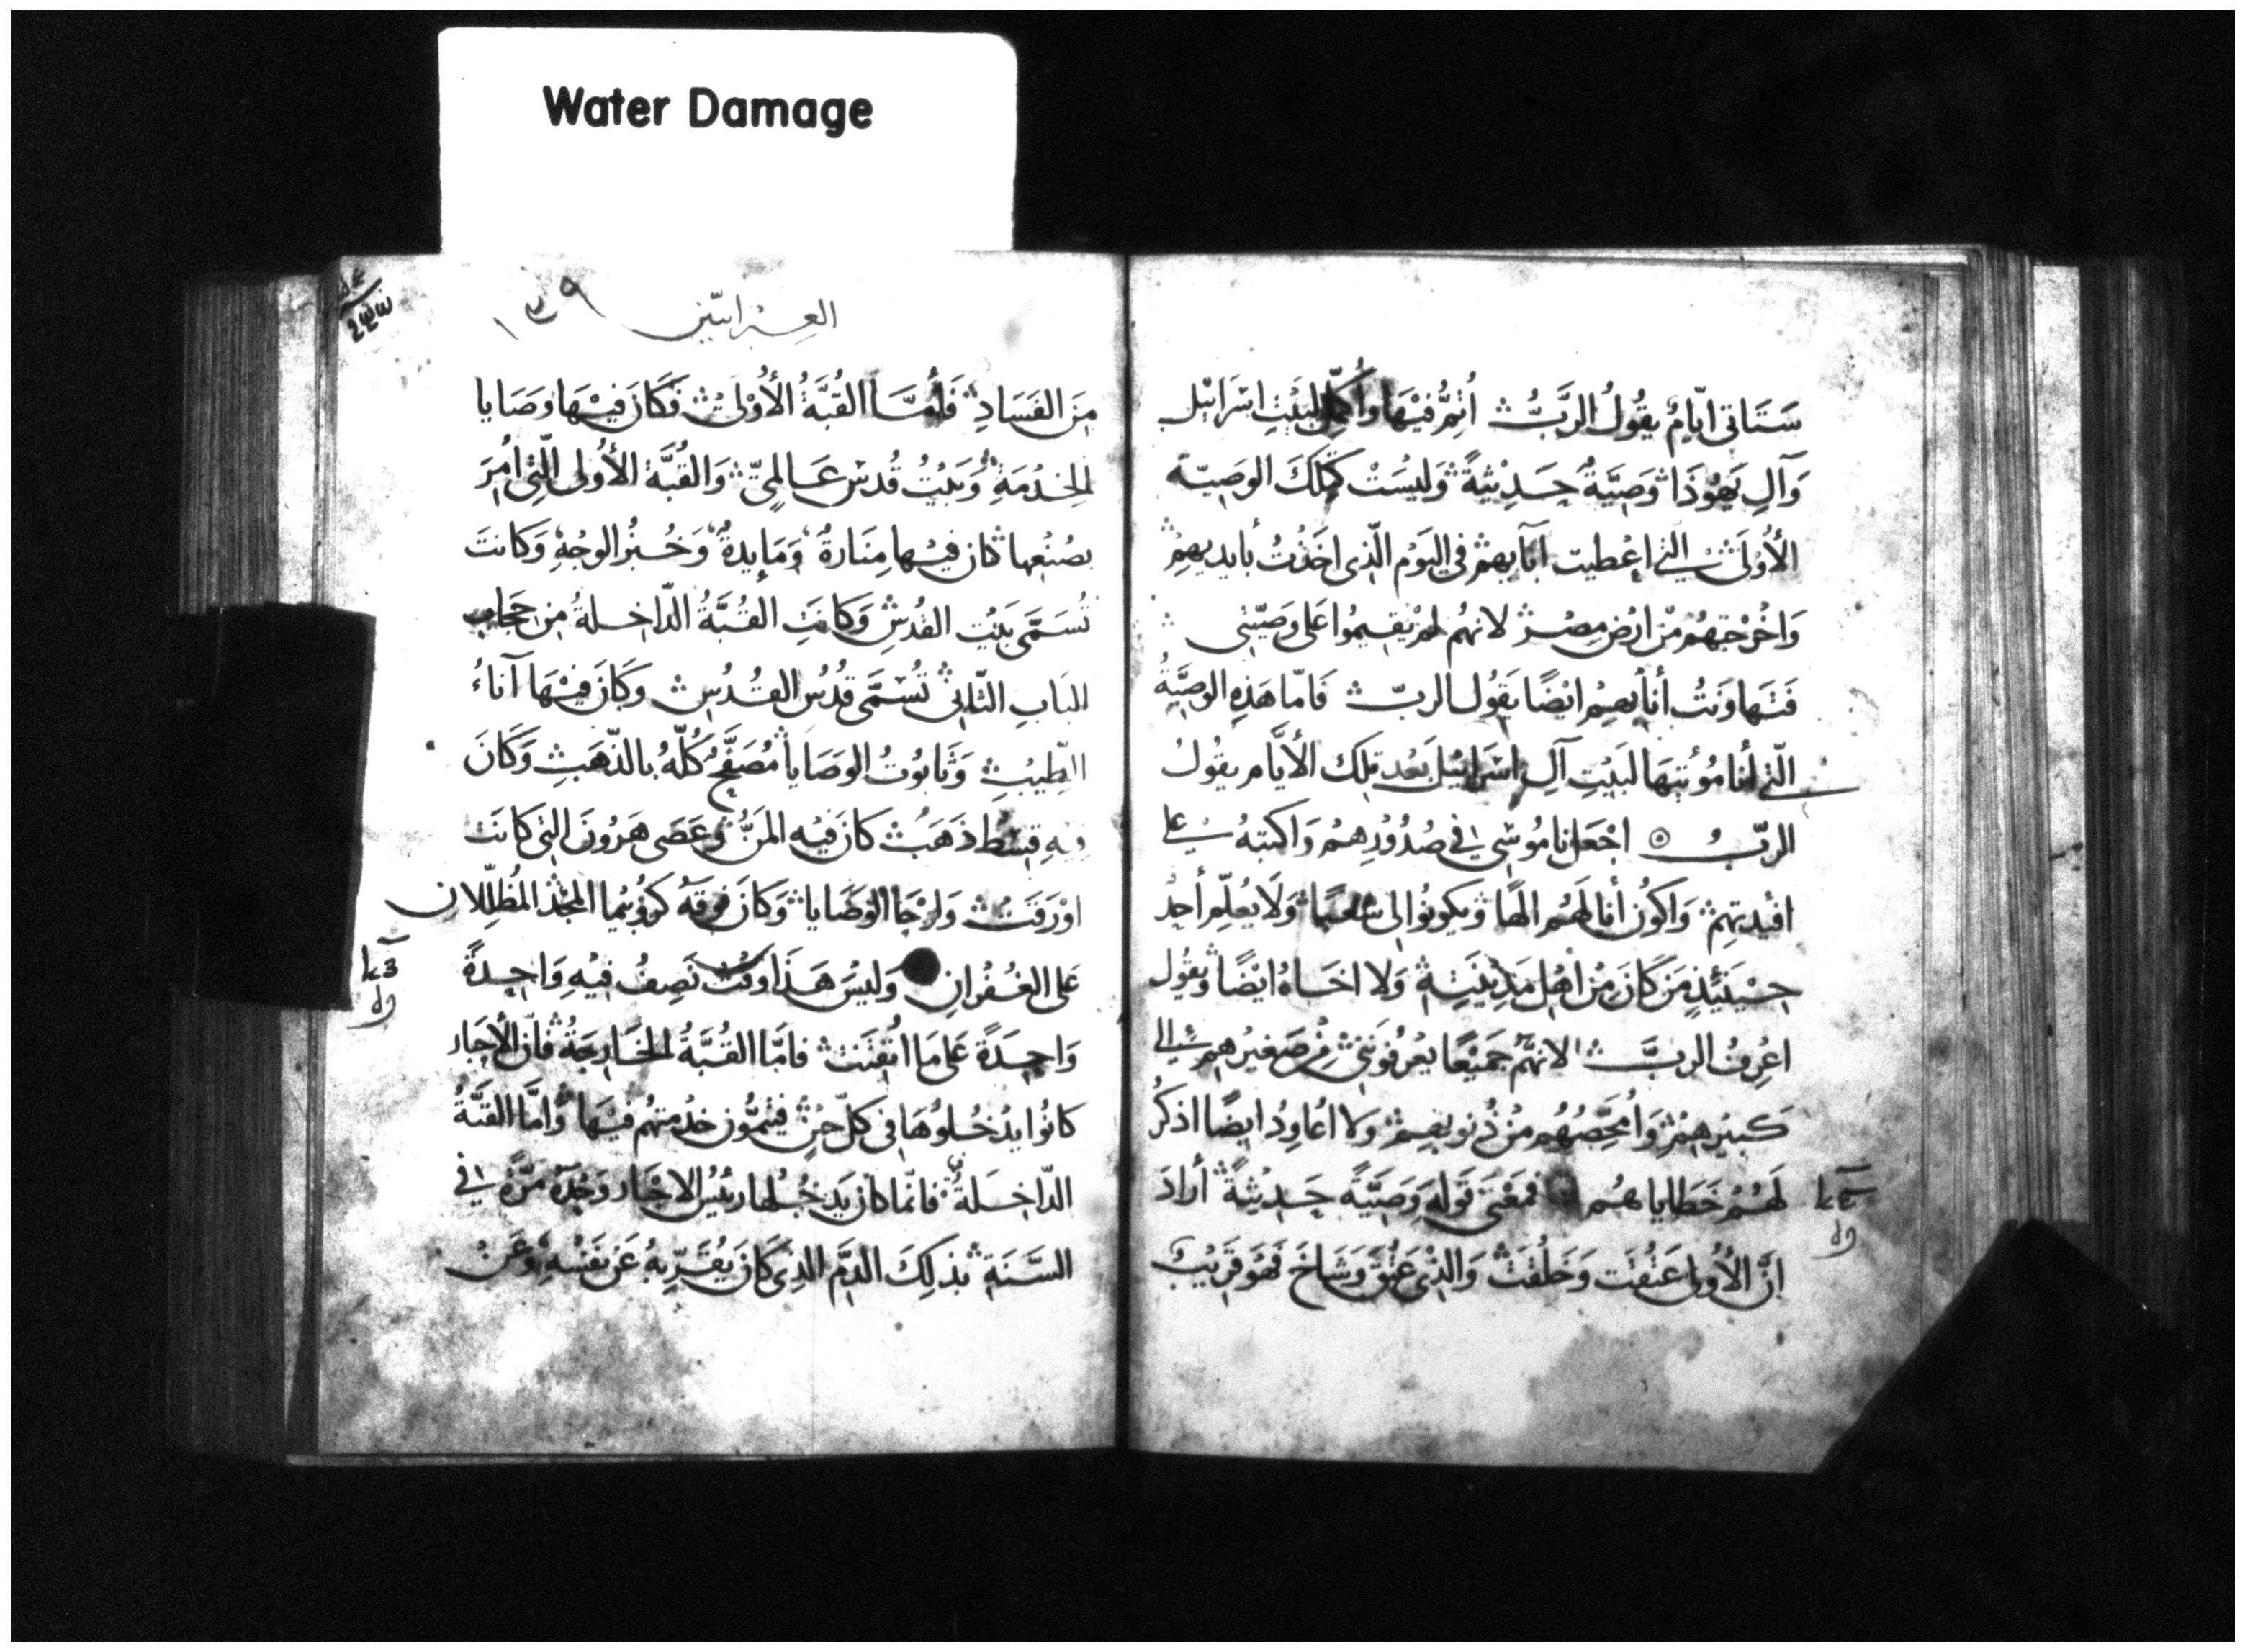 Water Damage
سَتَاتى ايّامٌ يقُولُ الرَّبُّ اُتِمُّ فيْهَا وأُكمِّلُ لبَيْتِ اسْرَائيل
وَآلِ يَهُوذَا وَصِيَّةً حَدِيْثِةً وَليْسَتْ كتِلكَ الوَصيّة
الأُوْلَى التى اعْطيت آبَآيهم فى اليَوْم الّذى اخَذْتُ بأيديهِمْ
وَاخْرجتهُم مِنْ ارْضِ مِصْرَ لانهُم لم يقيمُوا عَلى وصِيّتى
فتهَاونتُ أنا بِهِمْ ايْضًا يَقُولُ الربّ فَامّا هَذِهِ الوصِيَّةُ
التى أنا مُوْتيهَا لبَيْتِ آلِ اسْرَائيْل بَعْد تلك الأيَّام يقُولُ
الربُّ اجْعَل نامُوسى فى صُدُوْرِهِمْ وَاكتبهُ على
افيدتهِمْ وَاكوُن أنا لهُم الهًا ويكونُوا لى شعبًا وَلَا يُعلِّم أحدٌ
حِيْنَئِذٍ مَن كَانَ مِنْ اهْل مَدِيْنَتِهِ وَلا اخَاهُ ايْضًا ويقُول
اعْرِفُ الربَّ لانهُمْ جَمِيْعًا يَعْرفُونَنى مِنْ صَغيْرهِم الى
كَبيْرهِمْ وَاُمَحِّصُهُم مِنْ ذُنوبهِمْ ولا اُعَاوِدُ ايضًا اذكرُ
لَهُمْ خَطاياهُم فَمَعْنَى قَولهِ وَصِيَّةً حَدِيْثةً أرَادَ
انَّ الأُولى عَتُقَت وَخَلُقَتْ وَالذّى عَتُقَ وَشَاخَ فَهُوَ قَرَيْبٌ
العِبْرانيّين ١٣٩
مِنَ الفَسَادِ فَأمَّا القُبَّةُ الأُوْلَى فَكَانَ فيْهَا وصَايا
الخدْمَةِ وَبَيْتُ قُدْس عَالمِىّ وَالقُبَّة الأوُلى الّتِى اُمِرَ
بصُنْعِها كان فيْها مِنَارةٌ وَمَايدةٌ وَخُبزُ الوجْهِ وَكانتَ
تُسَمَّى بَيْت القُدْسِ وَكانَتِ القُبَّةُ الدّاخِلةُ مِن حِجابِ
البَابِ الثّانى تُسَمَّى قُدْسُ القُدُسِ وكَانَ فيْهَا آناءُ
الطِّيْبِ وَتَابوُتُ الوَصَايا مُصَفَّحٌ كُلّهُ بالذّهَبِ وَكَانَ
فيهِ قِسْطُ ذَهَبْ كانَ فيْه المَنُّ وعَصَى هَرُونَ التى كانَت
اوْرَقَتْ وَلوْحَا الوَصَايا وَكانَ فوقَهُ كرُوْبيْما المَجْد المُظلّلان
عَلى الغُفْرانِ وَليْسَ هَذَا وَقتْ نَصِفُ فيْهِ وَاحِدةً
وَاحِدَةً عَلى مَا اتْقَنتْ فامَّا القُبَّةُ الخَارِجَةُ فانّ الأحْبَار
كانُوا يدْخُلوُهَا فى كلّ حِيْنٍ فيُتمُّون خدْمتهُم فيْهَا وَامَّا القبَّةُ
الدّاخِلَةُ فانّما كان يَدخُلها رئيْسُ الاحْبَار وَحْدَهُ مَرَّةً فى
السَّنَةِ بذلِكَ الدَّمِ الذِى كَانَ يُقَرّبهُ عَن نَفْسِهِ وَعَنْ